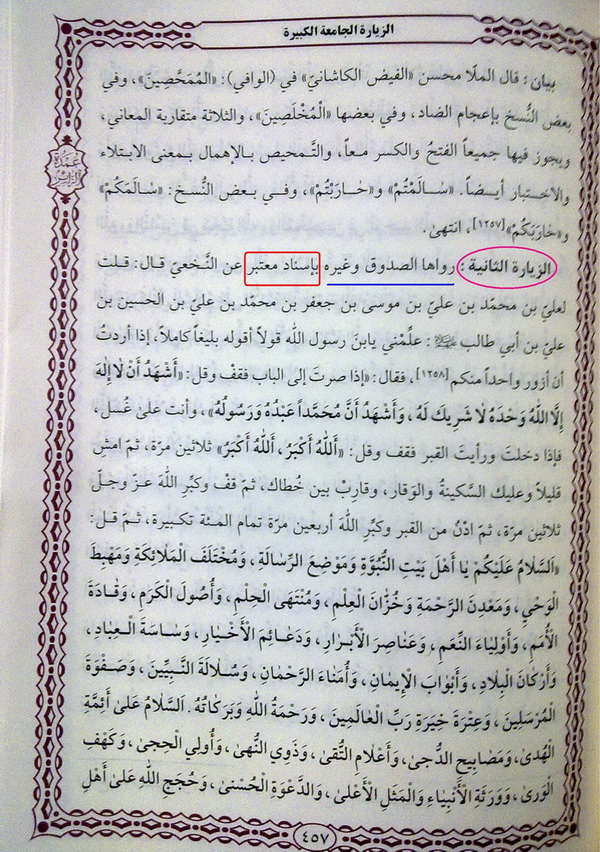 الزيارة الجامعة الكبيرة
عمدة الزائر
بيان : قال الملّا محسن «الفيض الكاشانيّ» في (الوافي): «المُمَحَّصِينَ»، وفي
بعض النُّسخ بإعجام الضاد، وفي بعضها «الْمُخْلَصِينَ»، والثلاثة متقاربة المعاني،
ويجوز فيها جميعاً الفتحُ والكسر معـاً، والتَّمحيص بـالإهمال بـمعنى الابـتلاء
والاخـتبار أيـضـاً. «سَـالَمْتُمْ» و«حَـارَبْتُمْ»، وفـي بـعض النُّسخ: «سَـالَمَكُمْ»
و«حَارَبَكُمْ»[١٢٥٧]، انتهىٰ .
الزيارة الثانية : رواها الصدوق وغيره بإسناد معتبر عن النَّخعيّ قـال: قـلت
لعليّ بن محمّد بن عليّ بن موسىٰ بن جعفر بن محمّد بن عليّ بن الحسين بن
عليّ بن أبي طالب ﷺ : علِّمْني يابنَ رسول الله قولاً أقوله بليغاً كاملاً، إذا أردتُ
أن أزور واحداً منكم[١٢٥٨]، فقال: «إذا صرتَ إلى الباب فقفْ وقل: «أَشْهَدُ أَنْ لَا إِلٰهَ
إِلَّا اللهُ وَحْدَهُ لَا شَرِيكَ لَهُ، وَأَشْهَدُ أَنَّ مُحَمَّداً عَبْدُهُ وَرَسُولُهُ»، وأنت علىٰ غُسل،
فإذا دخلتَ ورأيتَ القبر فقف وقل: «اَللهُ أَكْبَرُ، اَللهُ أَكْبَرُ» ثلاثين مرّة، ثمّ امشِ
قليلاً وعليك السكينةُ والوَقار، وقارِبْ بين خُطاك، ثمّ قفْ وكبِّرِ اللهَ عزّ وجلّ
ثلاثين مرّة، ثمّ ادْنُ من القبر وكبِّرِ اللهَ أربعين مرّة تمام المئة تكبيرة، ثمّ قل:
«اَلسَّلَامُ عَلَيْكُمْ يَا أَهْلَ بَيْتِ النُّبُوَّةِ وَمَوْضِعَ الرِّسَالَةِ، وَمُخْتَلَفَ الْمَلَائِكَةِ وَمَهْبِطَ
الْوَحْيِ، وَمَعْدِنَ الرَّحْمَةِ وَخُزَّانَ الْعِلْمِ، وَمُنْتَهَى الْحِلْمِ، وَأُصُولَ الْكَرَمِ، وَقَادَةَ
الْأُمَمِ، وَأَوْلِيَاءَ النِّعَمِ، وَعَنَاصِرَ الْأَبْرَارِ، وَدَعَائِمَ الْأَخْيَارِ، وَسَاسَةَ الْعِبَادِ،
وَأَرْكَانَ الْبِلَادِ، وَأَبْوَابَ الْإِيمَانِ، وَأُمَنَاءَ الرَّحْمَانِ، وَسُلَالَةَ النَّبِيِّينَ، وَصَفْوَةَ
الْمُرْسَلِينَ، وَعِتْرَةَ خِيَرَةِ رَبِّ الْعَالَمِينَ، وَرَحْمَةُ اللهِ وَبَرَكَاتُهُ. اَلسَّلَامُ عَلَىٰ أَئِمَّةِ
الْهُدَىٰ، وَمَصَابِيحِ الدُّجَىٰ، وَأَعْلَامِ التُّقَىٰ، وَذَوِي النُّهَىٰ، وَأُولِي الْحِجَىٰ، وَكَهْفِ
الْوَرَىٰ، وَوَرَثَةِ الْأَنْبِيَاءِ وَالْمَثَلِ الْأَعْلَىٰ، وَالدَّعْوَةِ الْحُسْنَىٰ، وَحُجَجِ اللهِ عَلَىٰ أَهْلِ
٤٥٧